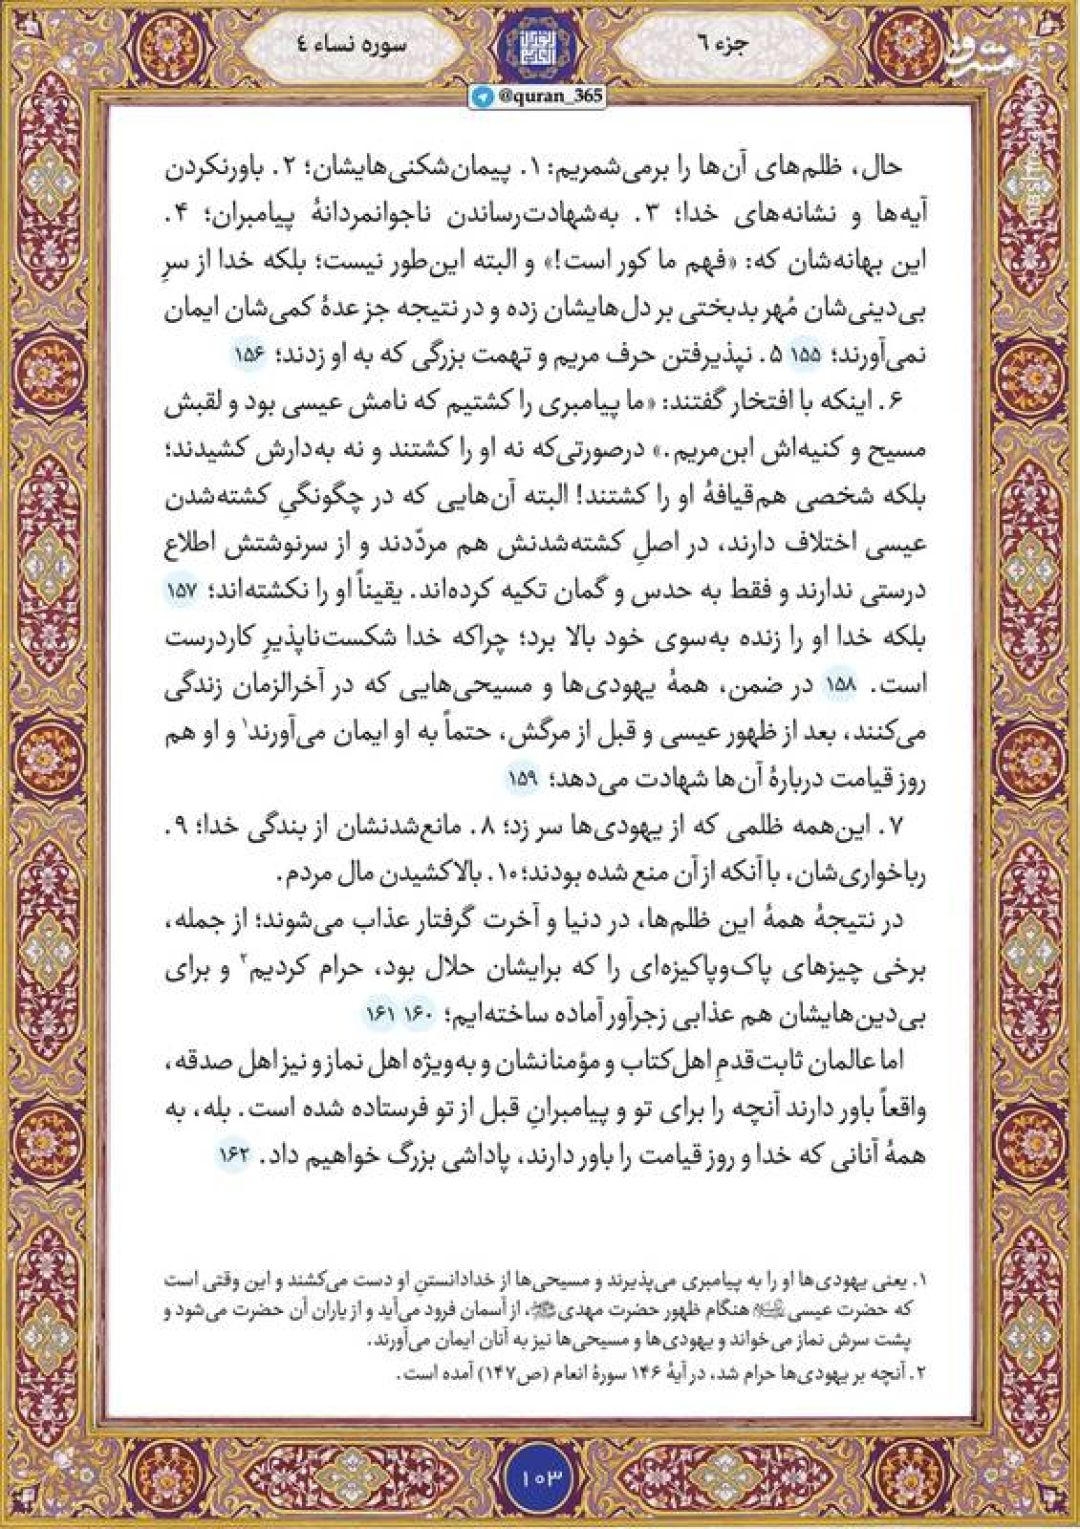 جزء ۶
سوره نساء ۴
@quran_365
مشرق
حال، ظلم‌های آن‌ها را برمی‌شمریم: ۱. پیمان‌شکنی‌هایشان؛ ۲. باورنکردن
آیه‌ها و نشانه‌های خدا؛ ۳. به‌شهادت‌رساندن ناجوانمردانهٔ پیامبران؛ ۴.
این بهانه‌شان که: «فهم ما کور است!» و البته این‌طور نیست؛ بلکه خدا از سرِ
بی‌دینی‌شان مُهر بدبختی بر دل‌هایشان زده و در نتیجه جز عدهٔ کمی‌شان ایمان
نمی‌آورند؛ ۱۵۵ ۵. نپذیرفتن حرف مریم و تهمت بزرگی که به او زدند؛ ۱۵۶
۶. اینکه با افتخار گفتند: «ما پیامبری را کشتیم که نامش عیسی بود و لقبش
مسیح و کنیه‌اش ابن‌مریم.» درصورتی‌که نه او را کشتند و نه به‌دارش کشیدند؛
بلکه شخصی هم‌قیافهٔ او را کشتند! البته آن‌هایی که در چگونگیِ کشته‌شدن
عیسی اختلاف دارند، در اصلِ کشته‌شدنش هم مردّدند و از سرنوشتش اطلاع
درستی ندارند و فقط به حدس و گمان تکیه کرده‌اند. یقیناً او را نکشته‌اند؛ ۱۵۷
بلکه خدا او را زنده به‌سوی خود بالا برد؛ چراکه خدا شکست‌ناپذیرِ کاردرست
است. ۱۵۸ در ضمن، همهٔ یهودی‌ها و مسیحی‌هایی که در آخرالزمان زندگی
می‌کنند، بعد از ظهور عیسی و قبل از مرگش، حتماً به او ایمان می‌آورند۱ و او هم
روز قیامت دربارهٔ آن‌ها شهادت می‌دهد؛ ۱۵۹
۷. این‌همه ظلمی که از یهودی‌ها سر زد؛ ۸. مانع‌شدنشان از بندگی خدا؛ ۹.
رباخواری‌شان، با آنکه از آن منع شده بودند؛ ۱۰. بالاکشیدن مال مردم.
در نتیجهٔ همهٔ این ظلم‌ها، در دنیا و آخرت گرفتار عذاب می‌شوند؛ از جمله،
برخی چیزهای پاک‌وپاکیزه‌ای را که برایشان حلال بود، حرام کردیم۲ و برای
بی‌دین‌هایشان هم عذابی زجرآور آماده ساخته‌ایم؛ ۱۶۰ ۱۶۱
اما عالمان ثابت‌قدمِ اهل‌کتاب و مؤمنانشان و به‌ویژه اهل نماز و نیز اهل صدقه،
واقعاً باور دارند آنچه را برای تو و پیامبرانِ قبل از تو فرستاده شده است. بله، به
همهٔ آنانی که خدا و روز قیامت را باور دارند، پاداشی بزرگ خواهیم داد. ۱۶۲
۱. یعنی یهودی‌ها او را به پیامبری می‌پذیرند و مسیحی‌ها از خدادانستنِ او دست می‌کشند و این وقتی است
که حضرت عیسی هنگام ظهور حضرت مهدی، از آسمان فرود می‌آید و از یاران آن حضرت می‌شود و
پشت سرش نماز می‌خواند و یهودی‌ها و مسیحی‌ها نیز به آنان ایمان می‌آورند.
۲. آنچه بر یهودی‌ها حرام شد، در آیهٔ ۱۴۶ سورهٔ انعام (ص۱۴۷) آمده است.
۱۰۳